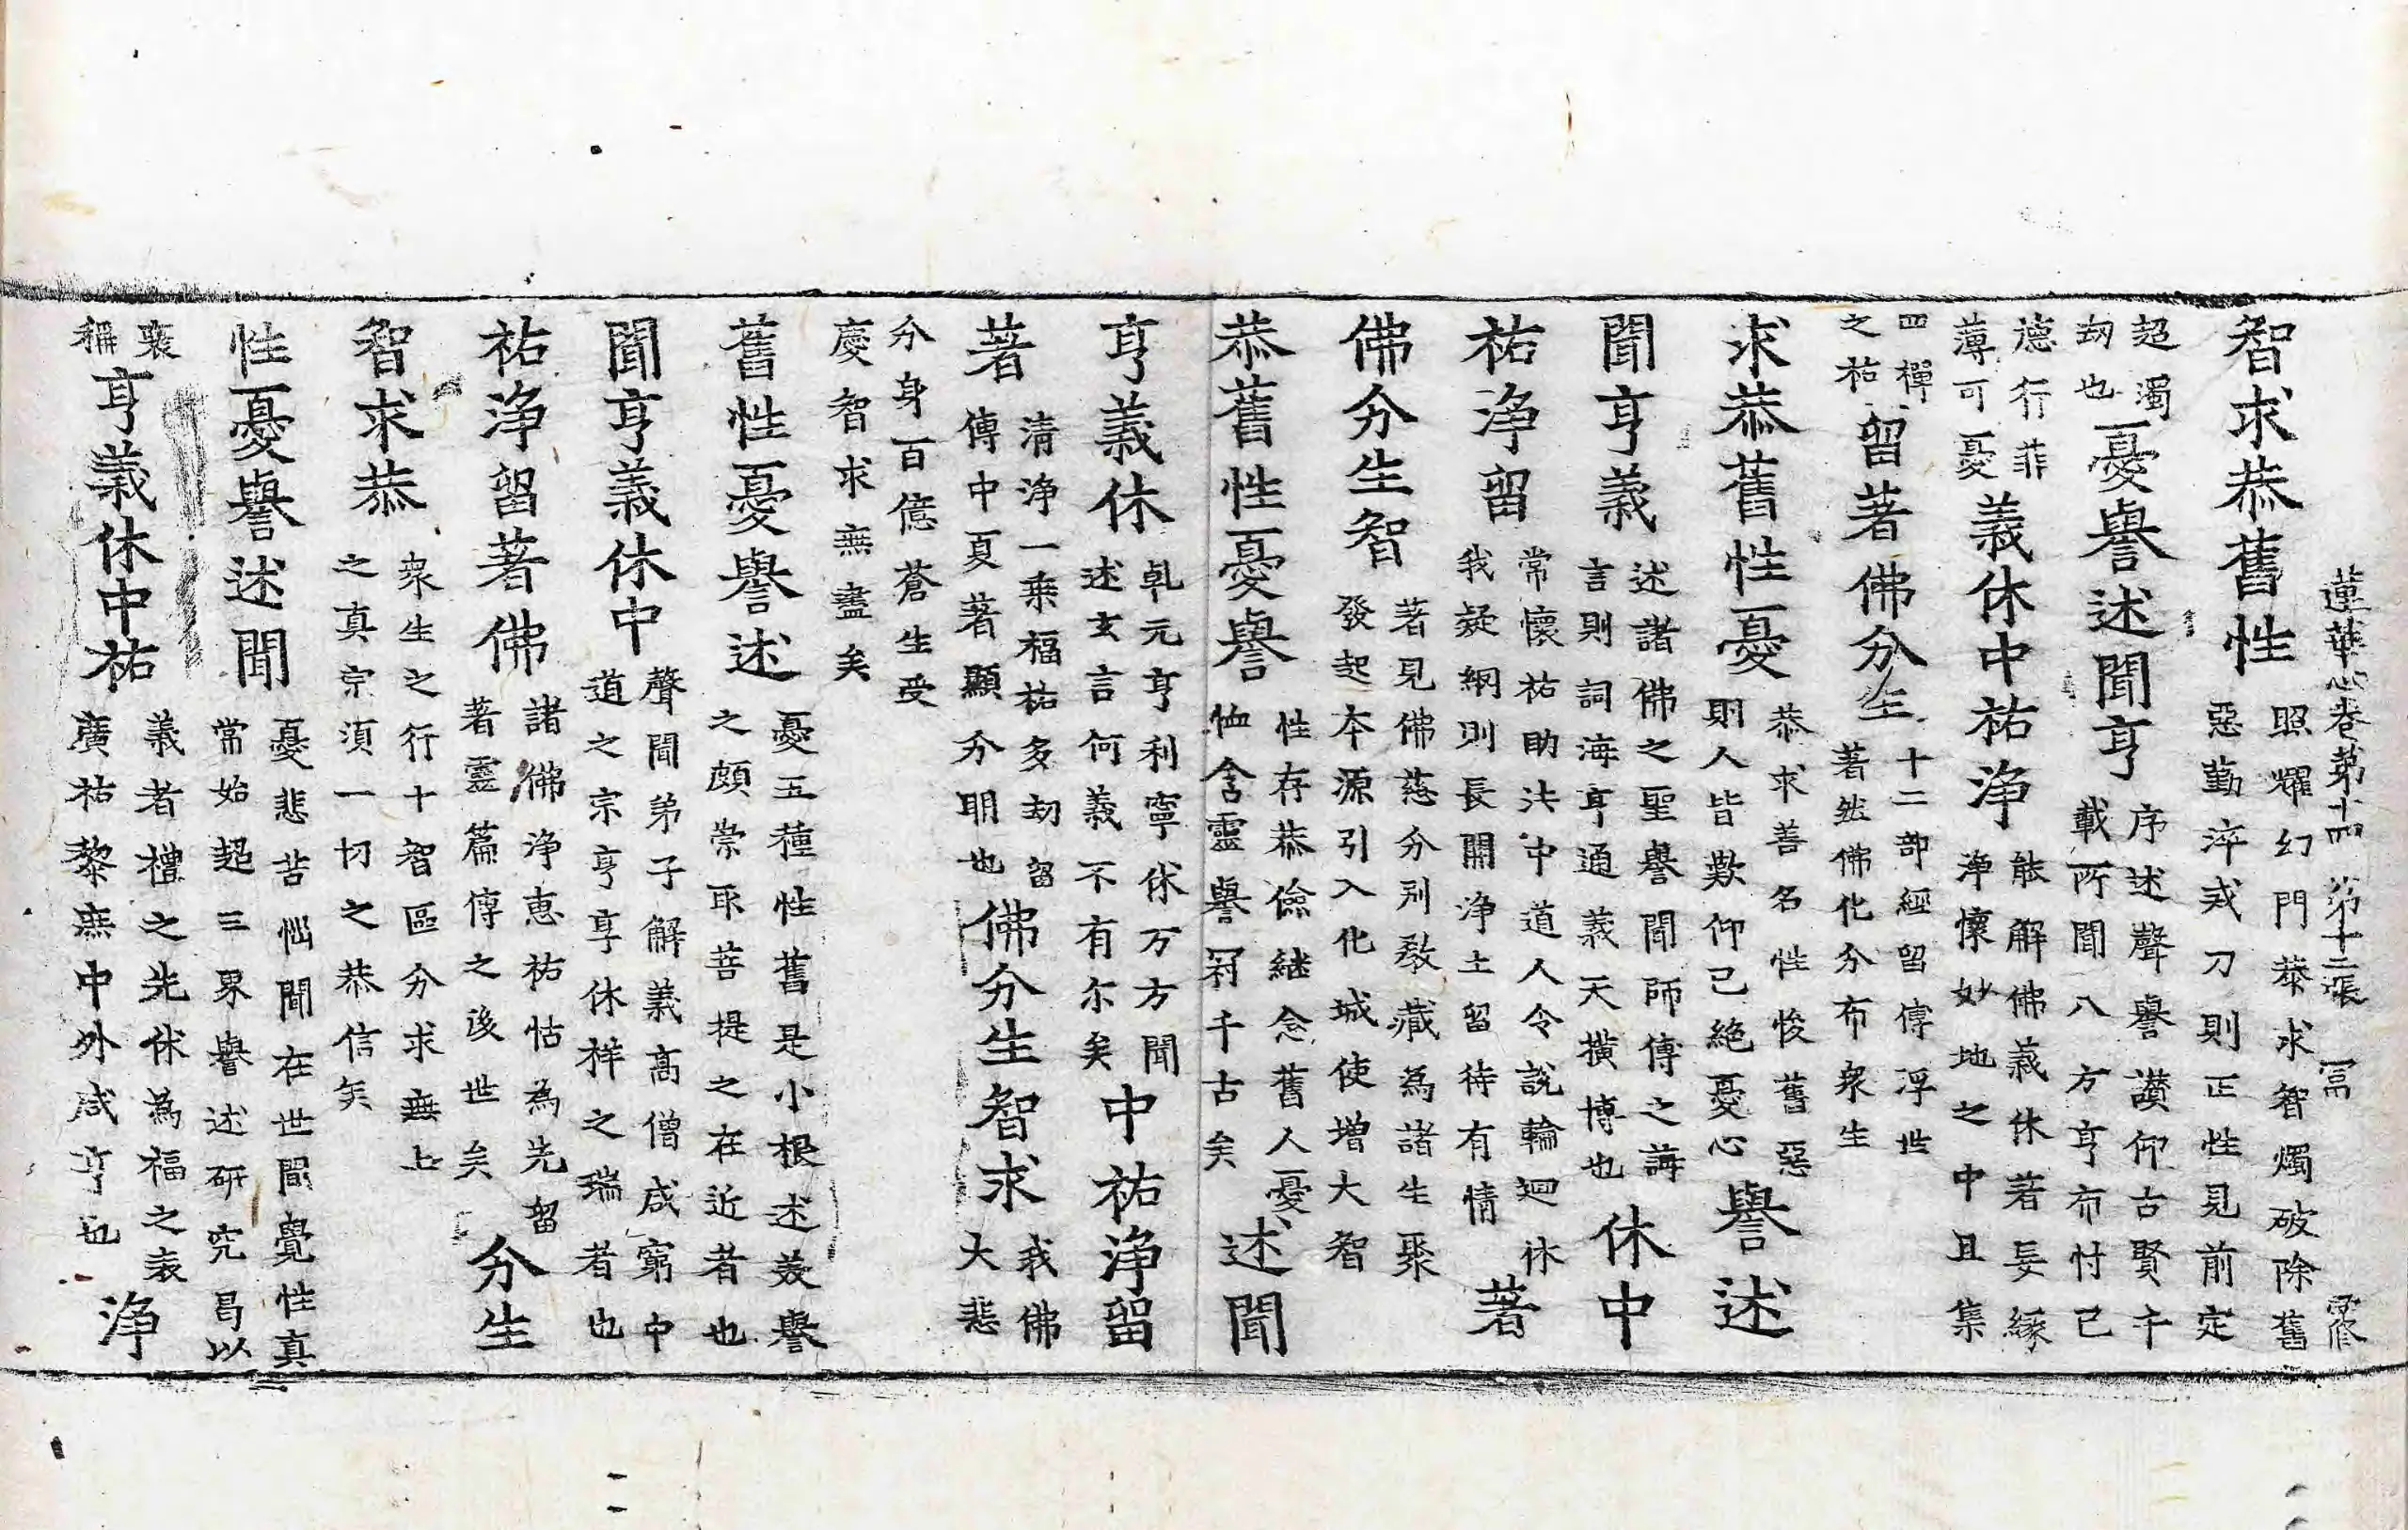 蓮華心卷第十四 第十三張 冨
智求恭舊性 照耀幻門恭求智燭破除舊
惡勤淬戒刀則正性見前定
超濁
刧也 憂譽述聞亨 序述聲譽讃仰古賢千
載所聞八方亨布忖己
德行菲
薄可憂 義休中祐淨 能解佛義休著妄緣
淨懷妙地之中且集
四禪
之祐 留著佛分生 十二部經留傳浮世
著然佛化分布衆生
求恭舊性憂 恭求善名性悛舊惡
則人皆歎仰己絕憂心 譽述
聞亨義 述諸佛之聖譽聞師傳之誨
言則詞海亨通義天撗博也 休中
祐淨留 常懷祐助法中道人令說輪迴休
我疑網則長開淨土留待有情 著
佛分生智 著見佛慈分別教藏為諸生聚
發起本源引入化城使增大智
恭舊性憂譽 性存恭儉継念舊人憂
恤含靈譽冠千古矣 述聞
亨義休 乹元亨利寧休万方聞
述玄言何義不有尒矣 中祐淨留
著 清淨一乗福祐多刧留
傳中夏著顯分明也 佛分生智求 我佛
大悲
分身百億蒼生受
慶智求無盡矣
舊性憂譽述 憂五種性舊是小根述羙譽
之頗崇取菩提之在近者也
聞亨義休中 聲聞弟子解義高僧咸窮中
道之宗亨享休祥之瑞者也
祐淨留著佛 諸佛淨惠祐怙為先留
著靈篇傳之後世矣 分生
智求恭 衆生之行十智區分求無上
之真宗湏一切之恭信矣
性憂譽述聞 憂悲苦惱聞在世間覺性真
常始超三界譽述研究昌以
裹
稱 亨義休中祐 義者禮之先休為福之表
廣祐黎無中外咸亨也 淨